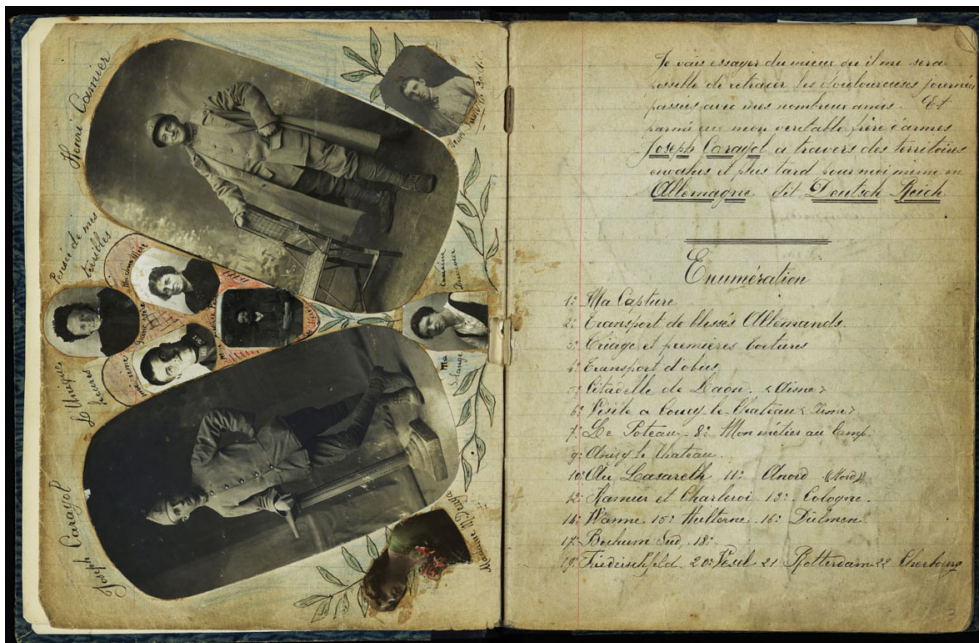 Henri Camier
Pensée de mes
terribles
L'Unique
heures
Joseph Carayol
Cousine
Ma
Solange
Madame
Je vais essayer du mieux qu'il me sera
possible de retracer les douloureuses journées
passées avec mes nombreux amis. Et
parmis eux mon veritable frère d'armes
Joseph Carayol a travers des territoires
envahis et plus tard pour moi même en
Allemagne dit Deutsch Reich
Enumération
1: Ma Capture
2: Transport de blessés Allemands.
3: Triage et premières
4: Transport d'obus
5: Citadelle de Laon. <Aisne>
6: Visite a Coucy le Chateau <Aisne>
7: Le Poteau 8: Mon métier au Camp.
9: Anisy le Chateau.
10: Au Lazareth 11: (Nord)
12: Namur et Charleroi 13: Cologne.
14: Wanne 15: 16: Dulmen
17: Bochum Sud, 18:
19: Friedrichfeld. 20: Vesel 21 Rotterdam 22 Cherbourg